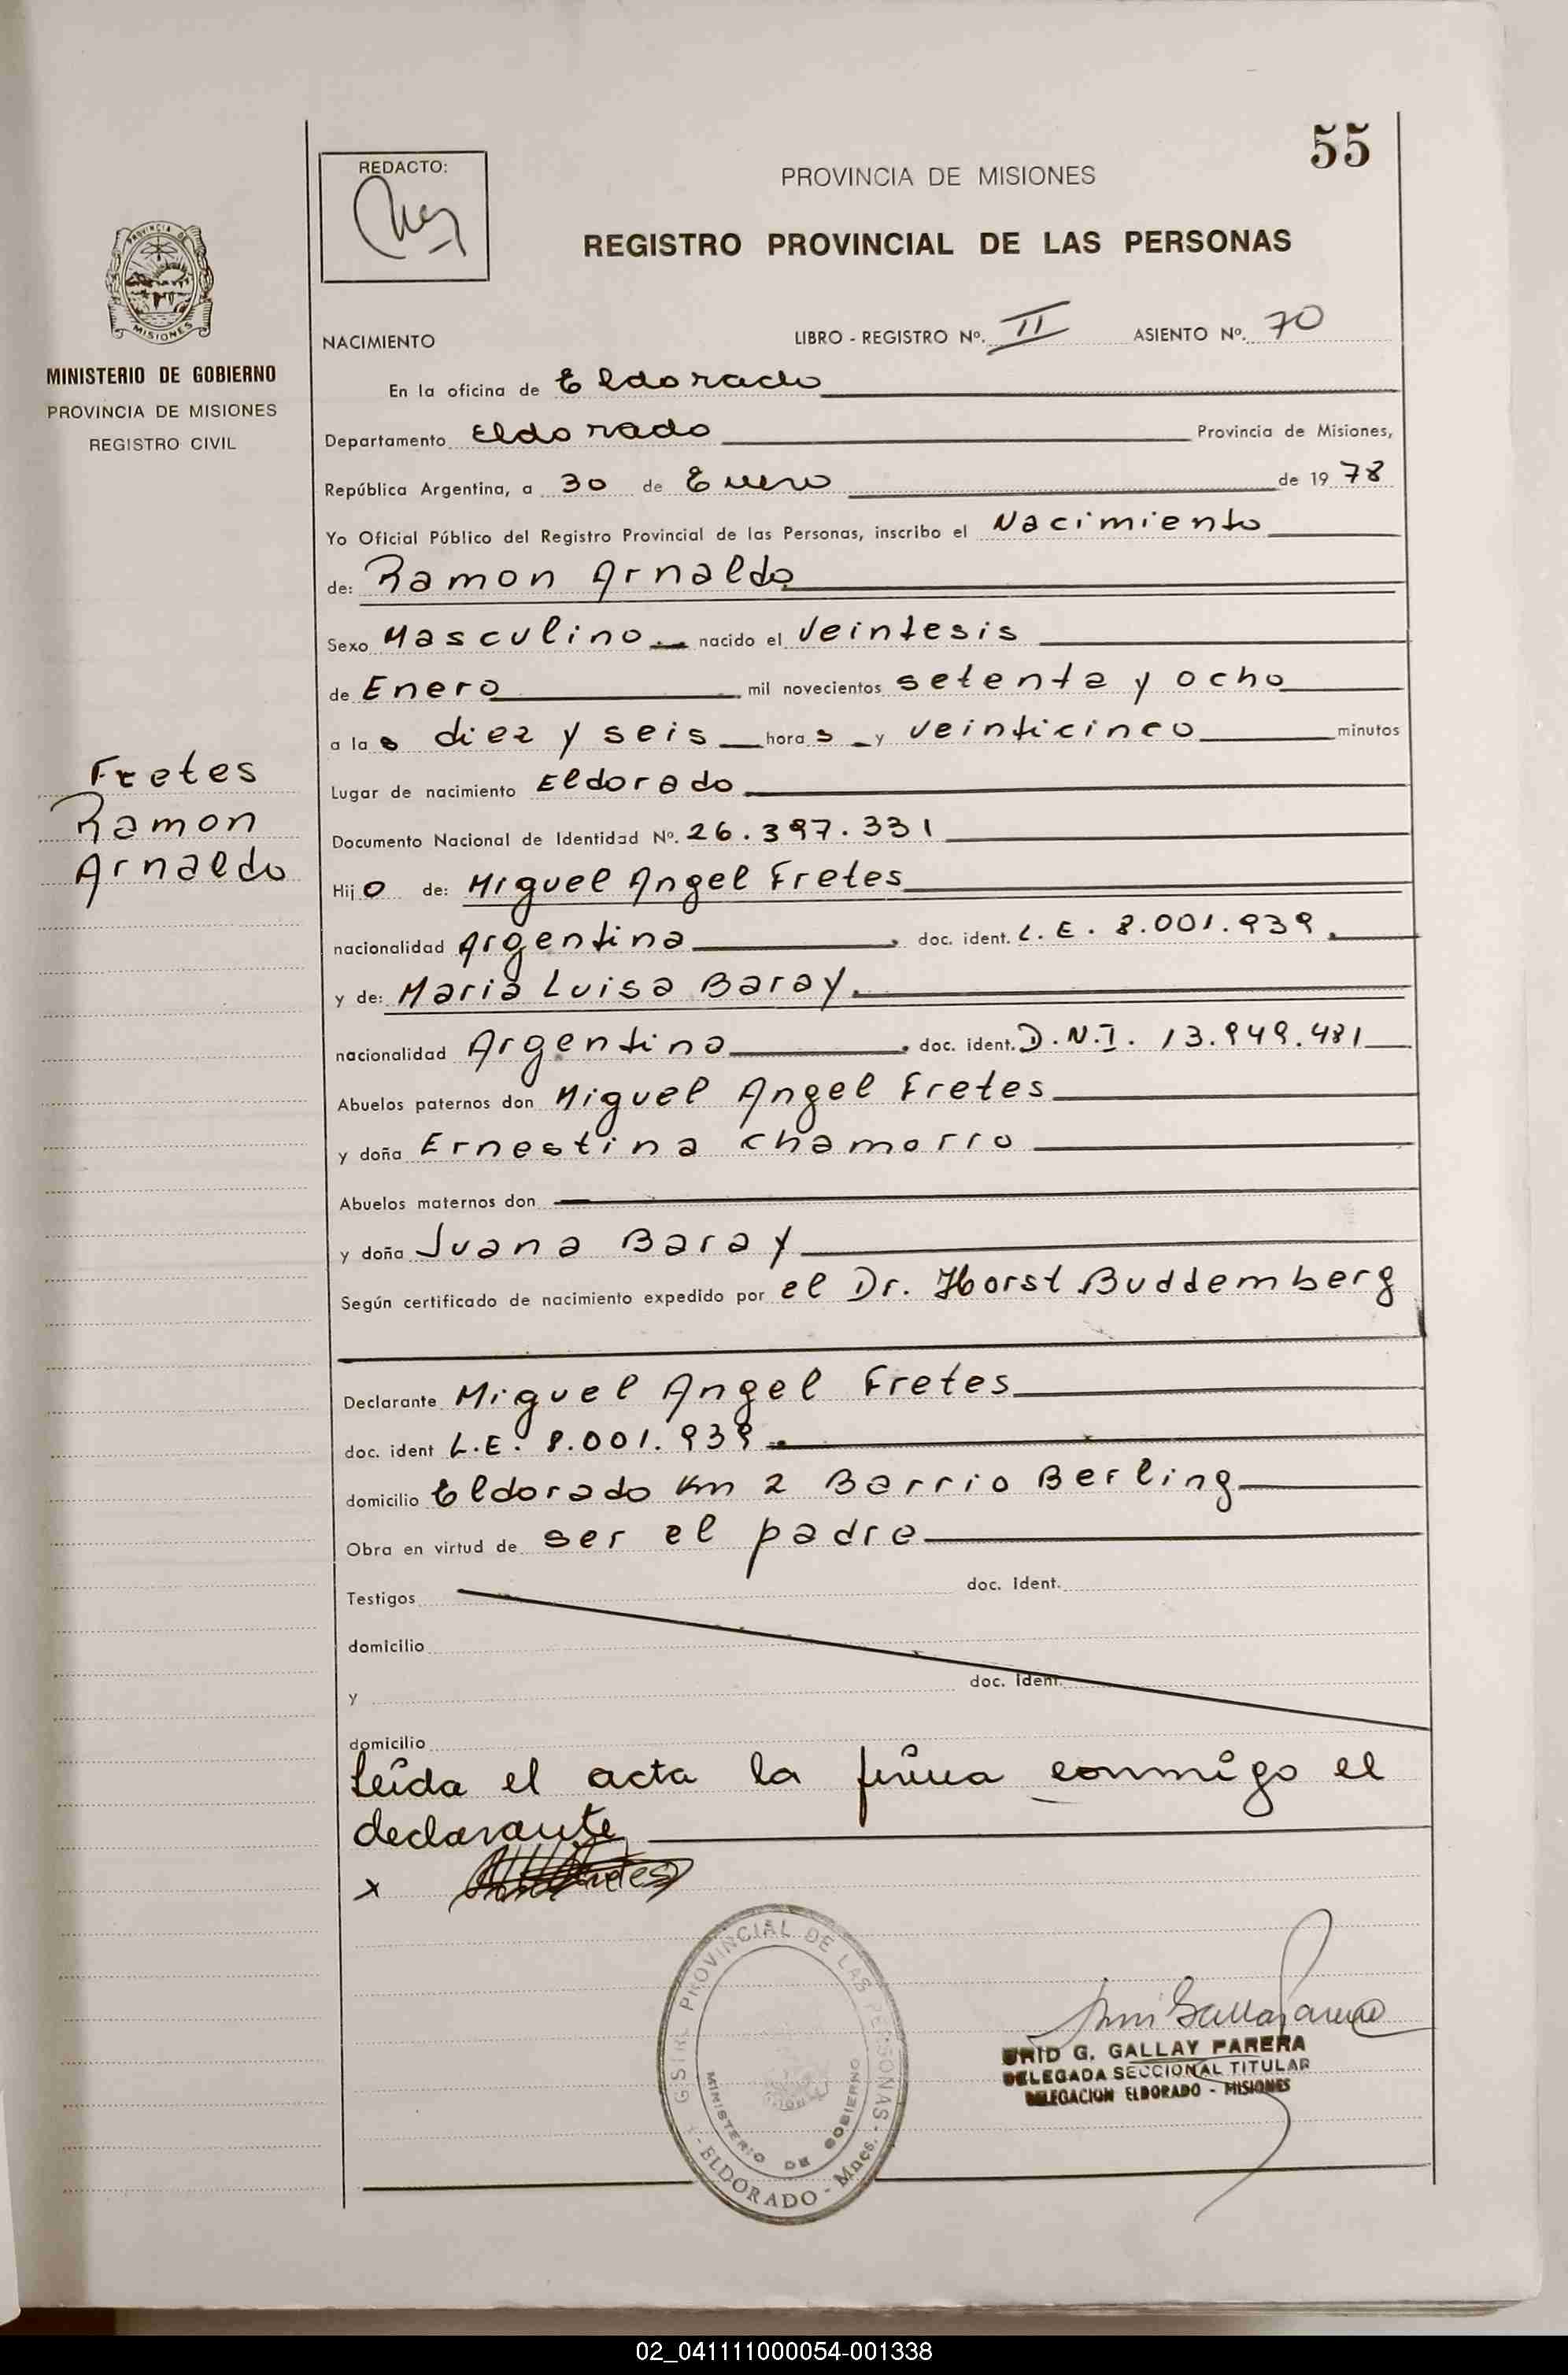 55
REDACTO:
PROVINCIA DE MISIONES
REGISTRO PROVINCIAL DE LAS PERSONAS
PROVINCIA DE
MISIONES
MINISTERIO DE GOBIERNO
PROVINCIA DE MISIONES
REGISTRO CIVIL
NACIMIENTO LIBRO - REGISTRO Nº. II ASIENTO Nº. 70
En la oficina de Eldorado
Departamento Eldorado Provincia de Misiones,
República Argentina, a 30 de Enero de 19 78
Yo Oficial Público del Registro Provincial de las Personas, inscribo el Nacimiento
de: Ramon Arnaldo
Sexo Masculino nacido el Veintesis
de Enero mil novecientos setenta y ocho
a las diez y seis horas y veinticinco minutos
Fretes
Ramon
Arnaldo
Lugar de nacimiento Eldorado
Documento Nacional de Identidad Nº. 26.397.331
Hijo de: Miguel Angel Fretes
nacionalidad Argentina, doc. ident. L.E. 8.001.939.
y de: Maria Luisa Baray.
nacionalidad Argentina, doc. ident. D.N.I. 13.949.481
Abuelos paternos don Miguel Angel Fretes
y doña Ernestina Chamorro
Abuelos maternos don
y doña Juana Baray
Según certificado de nacimiento expedido por el Dr. Horst Buddemberg
Declarante Miguel Angel Fretes
doc. ident L.E. 8.001.939
domicilio Eldorado Km 2 Barrio Berling
Obra en virtud de ser el padre
Testigos doc. Ident.
domicilio
y doc. ident.
domicilio
Leida el acta la firma conmigo el
declarante
x
PROVINCIAL DE LAS PERSONAS
MINISTERIO DE GOBIERNO
- ELDORADO - Mnes. -
G. GALLAY PARERA
DELEGADA SECCIONAL TITULAR
DELEGACION ELDORADO - MISIONES
02_041111000054-001338